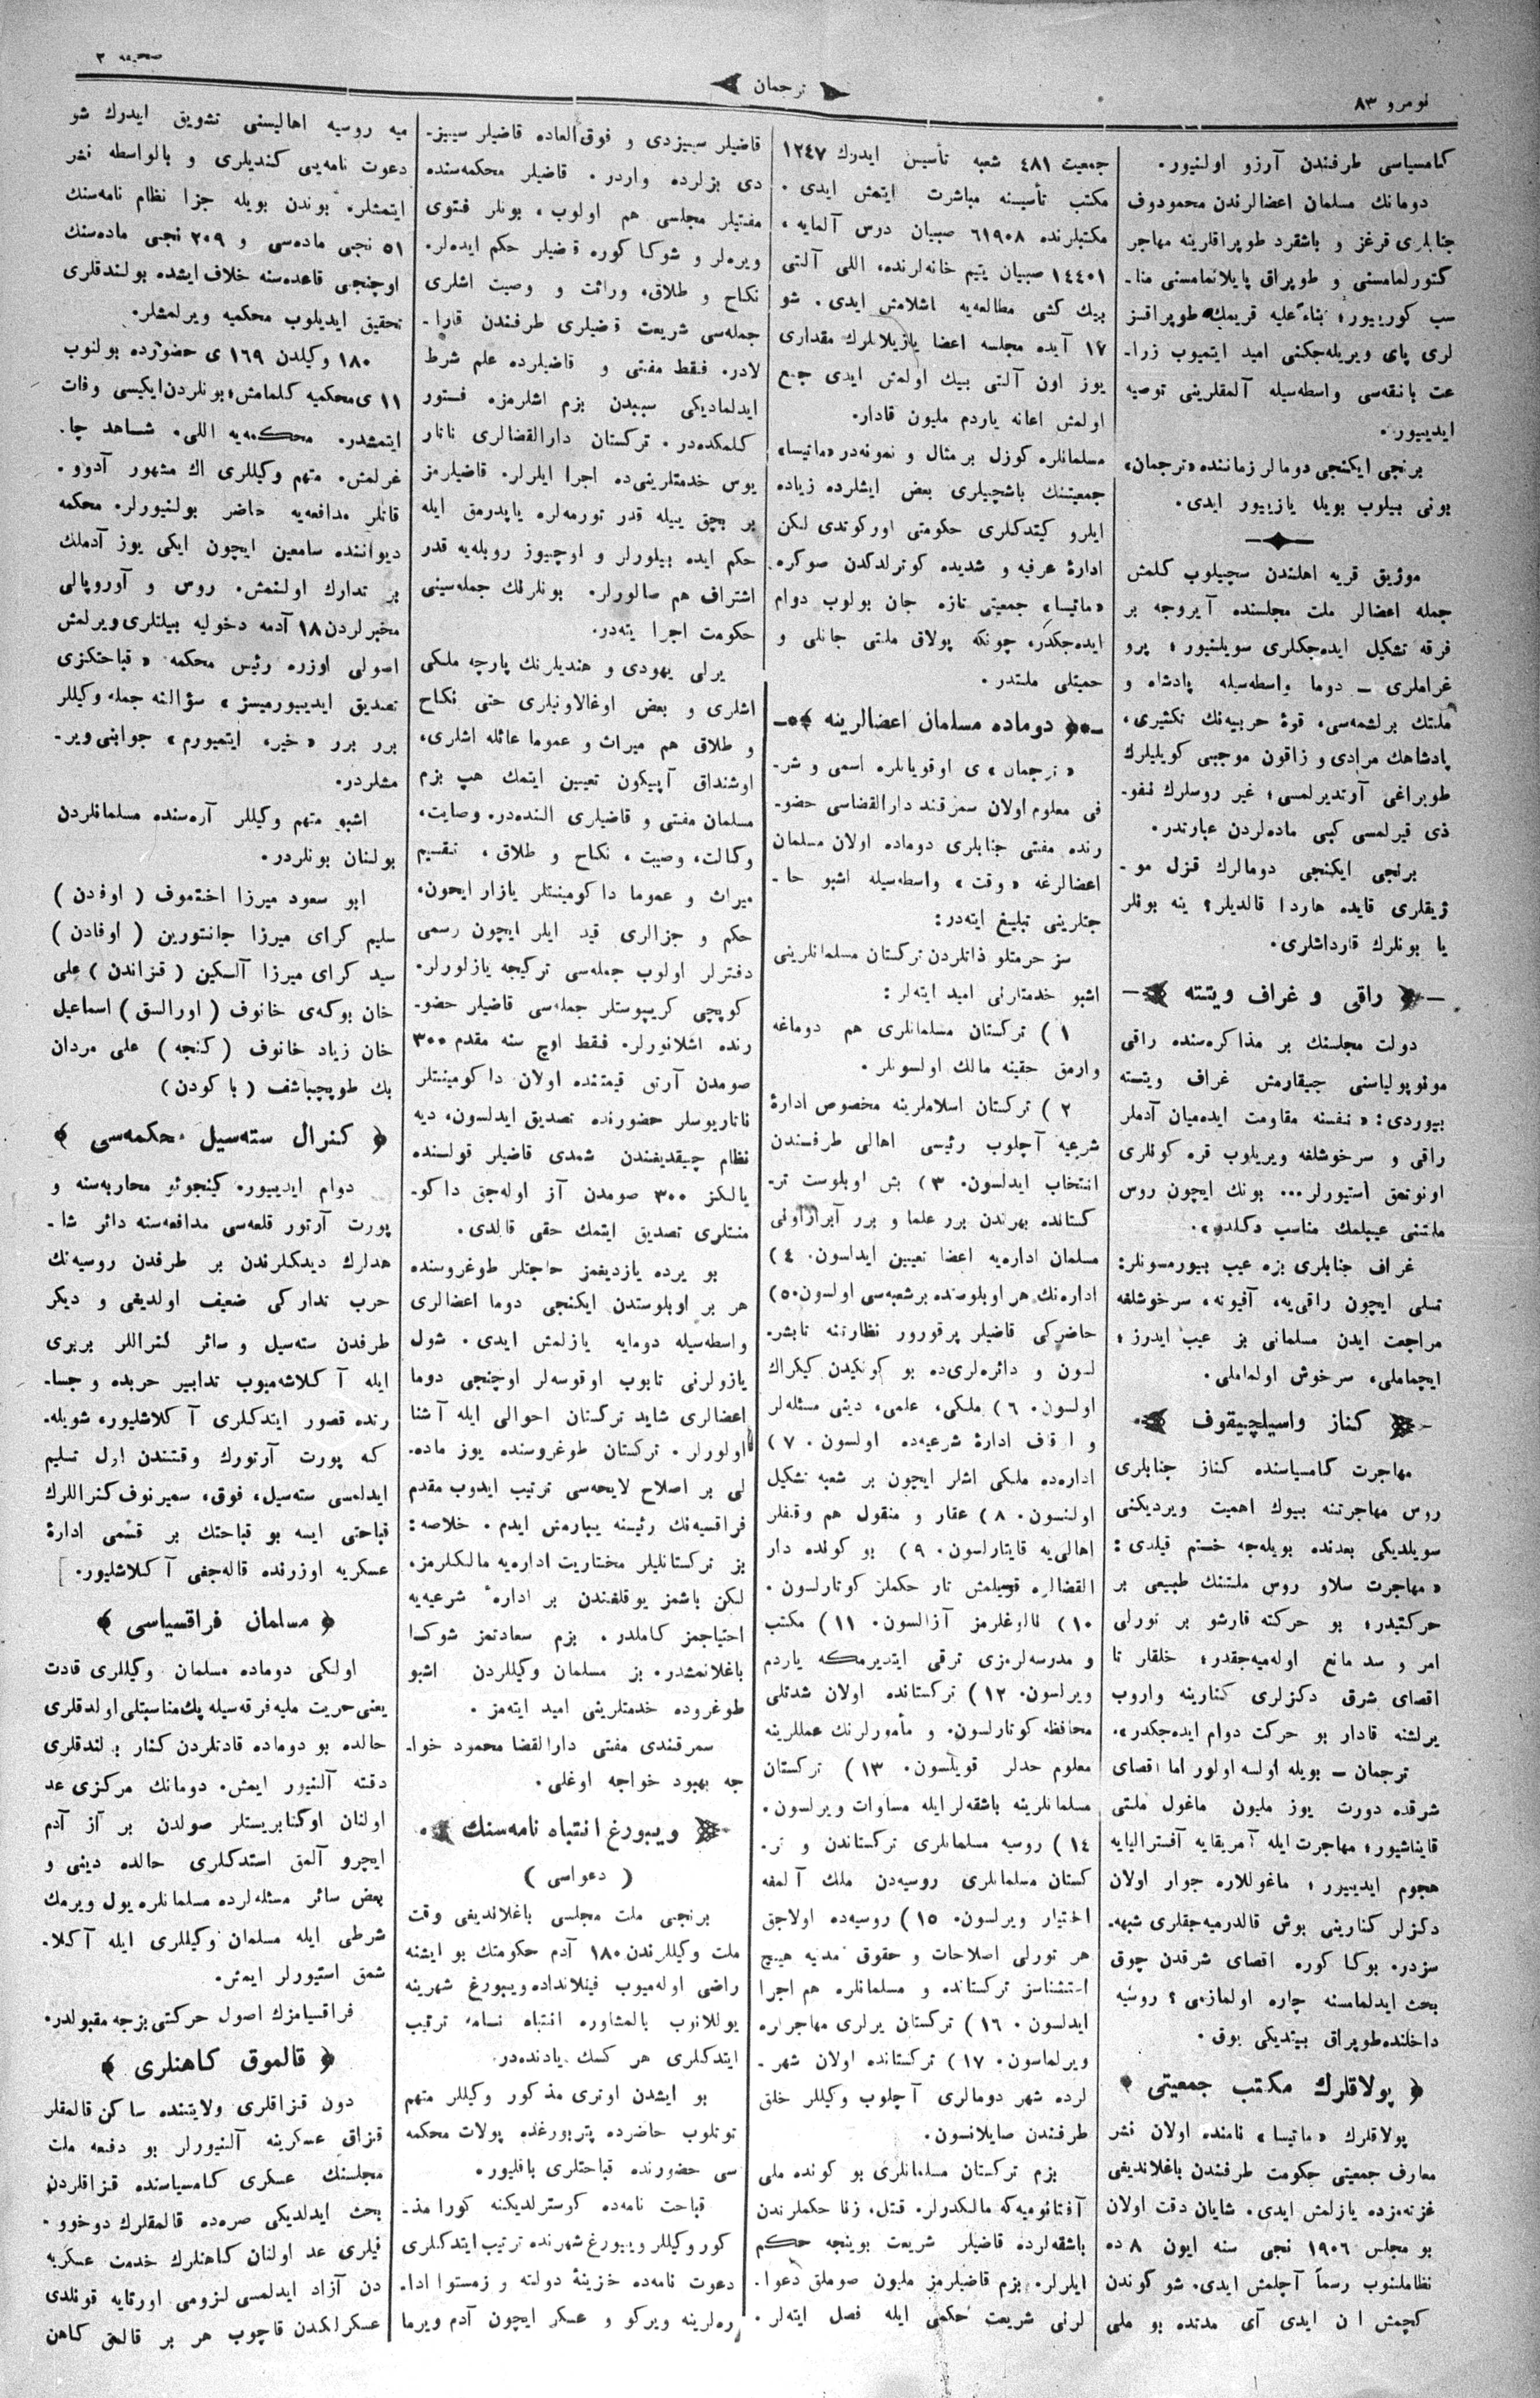 نومرو ٨٣
ترجمان
صحیفه ٣
كامسیاسی طرفندن آرزو اولنیور.
دومانك مسلمان اعضالرندن محمودوف
جنابلری قرغز و باشقرد طوپراقلرینه مهاجر
كتورلمامسنی و طوپراق پایلانمامسنی منا-
سب كوریور؛ بناءً علیه قریمك طوپراقسز
لری پای ویریله‌جكنی امید ایتمیوب زرا-
عت بانقه‌سی واسطه‌سیله آلمقلرینی توصیه
ایدییور.
برنجی ایكنجی دومالر زماننده «ترجمان»
بونی بیلوب بویله یازییور ایدی.
موژیق قریه اهلندن سچیلوب كلمش
جمله اعضالر ملت مجلسنده آیروجه بر
فرقه تشكیل ایده‌جكلری سویلنیور؛ پرو
غراملری ــ دوما واسطه‌سیله پادشاه و
ملتك برلشمه‌سی، قوهٔ حربیه‌نك تكثیری،
پادشاهك مرادی و زاقون موجبی كویلیلرك
طوبراغی آرتدیرلمسی؛ غیر روسلرك نفو-
ذی قیرلمسی كبی ماده‌لردن عبارتدر.
برنجی ایكنجی دومالرك قزل مو-
ژیقلری قایده هاردا قالدیلر؟ ینه بونلر
یا بونلرك قارداشلری.
راقی و غراف ویتته
دولت مجلسنك بر مذاكره‌سنده راقی
مونوپولیاسنی چیقارمش غراف ویتته
بیوردی: «نفسنه مقاومت ایده‌میان آدملر
راقی و سرخوشلغه ویریلوب قره كونلری
اونوتمق استیورلر... بونك ایچون روس
ملتنی عیبلمك مناسب دكلدر».
غراف جنابلری بزه عیب بیورمسونلر:
تسلی ایچون راقی‌یه، آفیونه، سرخوشلغه
مراجعت ایدن مسلمانی بز عیب ایدرز؛
ایچماملی، سرخوش اولماملی.
كناز واسیلچیقوف
مهاجرت كامسیاسنده كناز جنابلری
روس مهاجرتنه بیوك اهمیت ویردیكنی
سویلدیكی بعدنده بویله‌جه ختم قیلدی:
«مهاجرت سلاو روس ملتنك طبیعی بر
حركتیدر؛ بو حركته قارشو بر نورلی
امر و سد مانع اوله‌میه‌جقدر؛ خلقلر تا
اقصای شرق دكزلری كنارینه واروب
یرلشنه قادار بو حركت دوام ایده‌جكدر».
ترجمان ــ بویله اولسه اولور اما اقصای
شرقده دورت یوز ملیون ماغول ملتی
قایناشیور؛ مهاجرت ایله آمریقایه آفسترالیایه
هجوم ایدییرر؛ ماغوللاره جوار اولان
دكزلر كنارینی بوش قالدرمیه‌جقلری شبهه-
سزدر. بوكا كوره اقصای شرقدن چوق
بحث ایدلمامسنه چاره اولمازمی؟ روسیه
داخلنده طوپراق بیتدیكی یوق.
پولاقلرك مكتب جمعیتی
پولاقلرك «ماتیسا» نامنده اولان نشر
معارف جمعیتی حكومت طرفندن باغلاندیغی
غزته‌مزده یازلمش ایدی. شایان دقت اولان
بو مجلس ١٩٠٦ نجی سنه ایون ٨ ده
نظاملنوب رسماً آچلمش ایدی. شو كوندن
كچمش ان ایدی آی مدتده بو ملی
جمعیت ٤٨١ شعبه تأسیس ایدرك ١٢٤٧
مكتب تأسیسنه مباشرت ایتمش ایدی.
مكتبلرنده ٦١٩٠٨ صبیان درس آلمایه،
١٤٤٠١ صبیان یتیم خانه‌لرنده، اللی آلتی
بیك كشی مطالعه‌یه اشلامش ایدی. شو
١٧ آیده مجلسه اعضا یازیلانلرك مقداری
یوز اون آلتی بیك اولمش ایدی جمع
اولمش اعانه یاردم ملیون قادار.
مسلمانلره كوزل بر مثال و نمونه‌در «ماتیسا»
جمعیتنك باشچیلری بعض ایشلرده زیاده
ایلرو كیتدكلری حكومتی اوركوتدی لكن
ادارهٔ عرفیه و شدیده كوترلدكدن صوكره
«ماتیسا» جمعیتی تازه جان بولوب دوام
ایده‌جكدر، چونكه پولاق ملتی جانلی و
حمیتلی ملتدر.
دوماده مسلمان اعضالرینه
«ترجمان» ی اوقویانلره اسمی و شر-
فی معلوم اولان سمرقند دارالقضاسی حضو-
رنده مفتی جنابلری دوماده اولان مسلمان
اعضالرغه «وقت» واسطه‌سیله اشبو حا-
جتلرینی تبلیغ ایته‌در:
سز حرمتلو ذاتلردن تركستان مسلمانلرینی
اشبو خدمتلرنی امید ایته‌لر:
١) تركستان مسلمانلری هم دوماغه
وارمق حقینه مالك اولسونلر.
٢) تركستان اسلاملرینه مخصوص ادارهٔ
شرعیه آچلوب رئیسی اهالی طرفندن
انتخاب ایدلسون. ٣) بش اوبلوست تر-
كستانده بهرندن برر علما و برر آبرازاونی
مسلمان اداره‌یه اعضا تعیین ایدلسون. ٤)
اداره‌نك هر اوبلوصنده بر شعبه‌سی اولسون. ٥)
حاضركی قاضیلر پرقورور نظارتنه تابشر-
لسون و دائره‌لری‌ده بو كونكیدن كیكراك
اولسون. ٦) ملكی، علمی، دینی مسئله‌لر
و اوقاف ادارهٔ شرعیه‌ده اولسون. ٧)
اداره‌ده ملكی اشلر ایچون بر شعبه تشكیل
اولنسون. ٨) عقار و منقول هم وقفلر
اهالی‌یه قایتارلسون. ٩) بو كونده دار
القضالره قویلمش تار حكملر كوتارلسون.
١٠) نالوغلرمز آزالسون. ١١) مكتب
و مدرسه‌لرمزی ترقی ایتدیرمكه یاردم
ویرلسون. ١٢) تركستانده اولان شدتلی
محافظه كوتارلسون. و مأمورلرنك عمللرینه
معلوم حدلر قویلسون. ١٣) تركستان
مسلمانلرینه باشقه‌لر ایله مساوات ویرلسون.
١٤) روسیه مسلمانلری تركستاندن و تر-
كستان مسلمانلری روسیه‌دن ملك آلمغه
اختیار ویرلسون. ١٥) روسیه‌ده اولاجق
هر تورلی اصلاحات و حقوق مدنیه هیچ
استثناسز تركستانده و مسلمانلره هم اجرا
ایدلسون. ١٦) تركستان یرلری مهاجرلره
ویرلماسون. ١٧) تركستانده اولان شهر-
لرده شهر دومالری آچلوب وكیللر خلق
طرفندن صایلانسون.
بزم تركستان مسلمانلری بو كونده ملی
آفتانومیه‌كه مالكدرلر. قتل، زنا حكملرندن
باشقه‌لرده قاضیلر شریعت بوینجه حكم
ایلرلر. بزم قاضیلرمز ملیون صوملق دعوا-
لرنی شریعت حكمی ایله فصل ایته‌لر.
قاضیلر سییزدی و فوق العاده قاضیلر سییز-
دی بزلرده واردر. قاضیلر محكمه‌سنده
مفتیلر مجلسی هم اولوب، بونلر فتوی
ویره‌لر و شوكا كوره قضیلر حكم ایده‌لر.
نكاح و طلاق، وراثت و وصیت اشلری
جمله‌سی شریعت قضیلری طرفندن قارا-
لادر. فقط مفتی و قاضیلرده علم شرط
ایدلمادیكی سببدن بزم اشلرمزه فستور
كلمكده‌در. تركستان دارالقضالری ناتار
یوس خدمتلرینی‌ده اجرا ایلرلر. قاضیلرمز
بر بچق ییله قدر تورمه‌لره یاپدرمق ایله
حكم ایده بیلورلر و اوچیوز روبله‌یه قدر
اشتراف هم صالورلر. بونلرنك جمله‌سینی
حكومت اجرا یته‌در.
یرلی یهودی و هندیلرنك پارچه ملكی
اشلری و بعض اوغالاونیلری حتی نكاح
و طلاق هم میراث و عموما عائله اشلری،
اوشنداق آپیكون تعیین ایتمك هپ بزم
مسلمان مفتی و قاضیلری النده‌در. وصایت،
وكالت، وصیت، نكاح و طلاق، تقسیم
میراث و عموما داكومینتلر یازار ایحون،
حكم و جزالری قید ایلر ایچون رسمی
دفترلر اولوب جمله‌سی تركیجه یازلورلر.
كوپچی كریپوستلر جمله‌سی قاضیلر حضو-
رنده اشلانورلر. فقط اوچ سنه مقدم ٣٠٠
صومدن آرتق قیمتنده اولان داكومینتلر
ناتاریوسلر حضورنده تصدیق ایدلسون، دیه
نظام چیقدیغندن شمدی قاضیلر قولسنده
یالكز ٣٠٠ صومدن آز اوله‌جق داكو-
منتلری تصدیق ایتمك حقی قالدی.
بو یرده یازدیغمز حاجتلر طوغروسنده
هر بر اوبلوستدن ایكنجی دوما اعضالری
واسطه‌سیله دومایه یازلمش ایدی. شول
یازولرنی تابوب اوقوسه‌لر اوچنجی دوما
اعضالری شاید تركستان احوالی ایله آشنا
اولورلر. تركستان طوغروسنده یوز ماده-
لی بر اصلاح لایحه‌سی ترتیب ایدوب مقدم
فراقسیه‌نك رئیسنه یبارمش ایدم. خلاصه:
بز تركستانلیلر مختاریت اداره‌یه مالكلرمز.
لكن باشمز یوقلغندن بر ادارهٔ شرعیه‌یه
احتیاجمز كاملدر. بزم سعادتمز شوكا
باغلانمشدر. بز مسلمان وكیللردن اشبو
طوغروده خدمتلرینی امید ایته‌مز.
سمرقندی مفتی دارالقضا محمود خوا-
جه بهبود خواجه اوغلی.
ویبورغ انتباه نامه‌سنك
(دعواسی)
برنجی ملت مجلسی باغلاندیغی وقت
ملت وكیللرندن ١٨٠ آدم حكومتك بو ایشنه
راضی اوله‌میوب فینلانداده ویبورغ شهرینه
یوللانوب بالمشاوره انتباه نسامه ترتیب
ایتدكلری هر كسك یادنده‌در.
بو ایشدن اوتری مذكور وكیللر متهم
توتلوب حاضرده پتربورغده پولات محكمه
سی حضورنده قباحتلری باقلیور.
قباحت نامه‌ده كوسترلدیكنه كورا مذ-
كور وكیللر ویبورغ شهرنده ترتیب ایتدكلری
دعوت نامه‌ده خزینهٔ دولته و زمستوا ادا-
ره‌لرینه ویركو و عسكر ایچون آدم ویرما
میه روسیه اهالیسنی تشویق ایدرك شو
دعوت نامه‌یی كندیلری و بالواسطه نشر
ایتمشلر. بوندن بویله جزا نظام نامه‌سنك
٥١ نجی ماده‌سی و ٢٠٩ نجی ماده‌سنك
اوچنجی قاعده‌سنه خلاف ایشده بولندقلری
تحقیق ایدیلوب محكمیه ویرلمشلر.
١٨٠ وكیلدن ١٦٩ ی حضورده بولنوب
١١ ی محكمیه كلمامش؛ بونلردن ایكیسی وفات
ایتمشدر. محكمه‌یه اللی. شاهد چا-
غرلمش. متهم وكیللری اك مشهور آدوو-
قاتلر مدافعه‌یه حاضر بولنیورلر. محكمه
دیواننده سامعین ایچون ایكی یوز آدملك
بر تدارك اولنمش. روس و آوروپالی
مخبرلردن ١٨ آدمه دخولیه بیلتلری ویرلمش
اصولی اوزره رئیس محكمه «قباحتكزی
تصدیق ایدییورمیسز» سؤالنه جمله وكیللر
برر برر «خیر، ایتمیورم» جوابنی ویر-
مشلردر.
اشبو متهم وكیللر آره‌سنده مسلمانلردن
بولنان بونلردر.
ابو سعود میرزا اختموف (اوفدن)
سلیم كرای میرزا جانتورین (اوفادن)
سید كرای میرزا آلكین (قزاندن) علی
خان بوكه‌ی خانوف (اورالسق) اسماعیل
خان زیاد خانوف (كنجه) علی مردان
بك طوپچیباشف (باكودن)
كنرال سته‌سیل محكمه‌سی
دوام ایدییور. كینجوئو محاربه‌سنه و
پورت آرتور قلعه‌سی مدافعه‌سنه دائر شا-
هدلرك دیدكلرندن بر طرفدن روسیه‌نك
حرب تداركی ضعیف اولدیغی و دیكر
طرفدن سته‌سیل و سائر كنراللر بربری
ایله آكلاشه‌میوب تدابیر حربده و جسا-
رتده قصور ایتدكلری آكلاشلیور. شویله-
كه پورت آرتورك وقتندن اول تسلیم
ایدلمسی سته‌سیل، فوق، سمیرنوف كنراللرك
قباحتی ایسه بو قباحتك بر قسمی ادارهٔ
عسكریه اوزرنده قاله‌جغی آكلاشلیور.
مسلمان فراقسیاسی
اولكی دوماده مسلمان وكیللری قادت
یعنی حریت ملیه فرقه‌سیله پك مناسبتلی اولدقلری
حالده بو دوماده قادتلردن كنار بولندقلری
دقته آلنیور ایمش. دومانك مركزی عد
اولنان اوكتابریستلر صولدن بر آز آدم
ایچرو آلمق استدكلری حالده دینی و
بعض سائر مسئله‌لرده مسلمانلره یول ویرمك
شرطی ایله مسلمان وكیللری ایله آكلا-
شمق استیورلر ایمش.
فراقسیامزك اصول حركتی بزجه مقبولدر.
قالموق كاهنلری
دون قزاقلری ولایتنده ساكن قالمقلر
قزاق عسكرینه آلنیورلر بو دفعه ملت
مجلسنك عسكری كامسیاسنده قزاقلردن
بحث ایدلدیكی صره‌ده قالمقلرك دوخوو-
نیلری عد اولنان كاهنلرك خدمت عسكریه
دن آزاد ایدلمسی لزومی اورتایه قونلدی
عسكرلكدن قاچوب هر بر قالمق كاهن